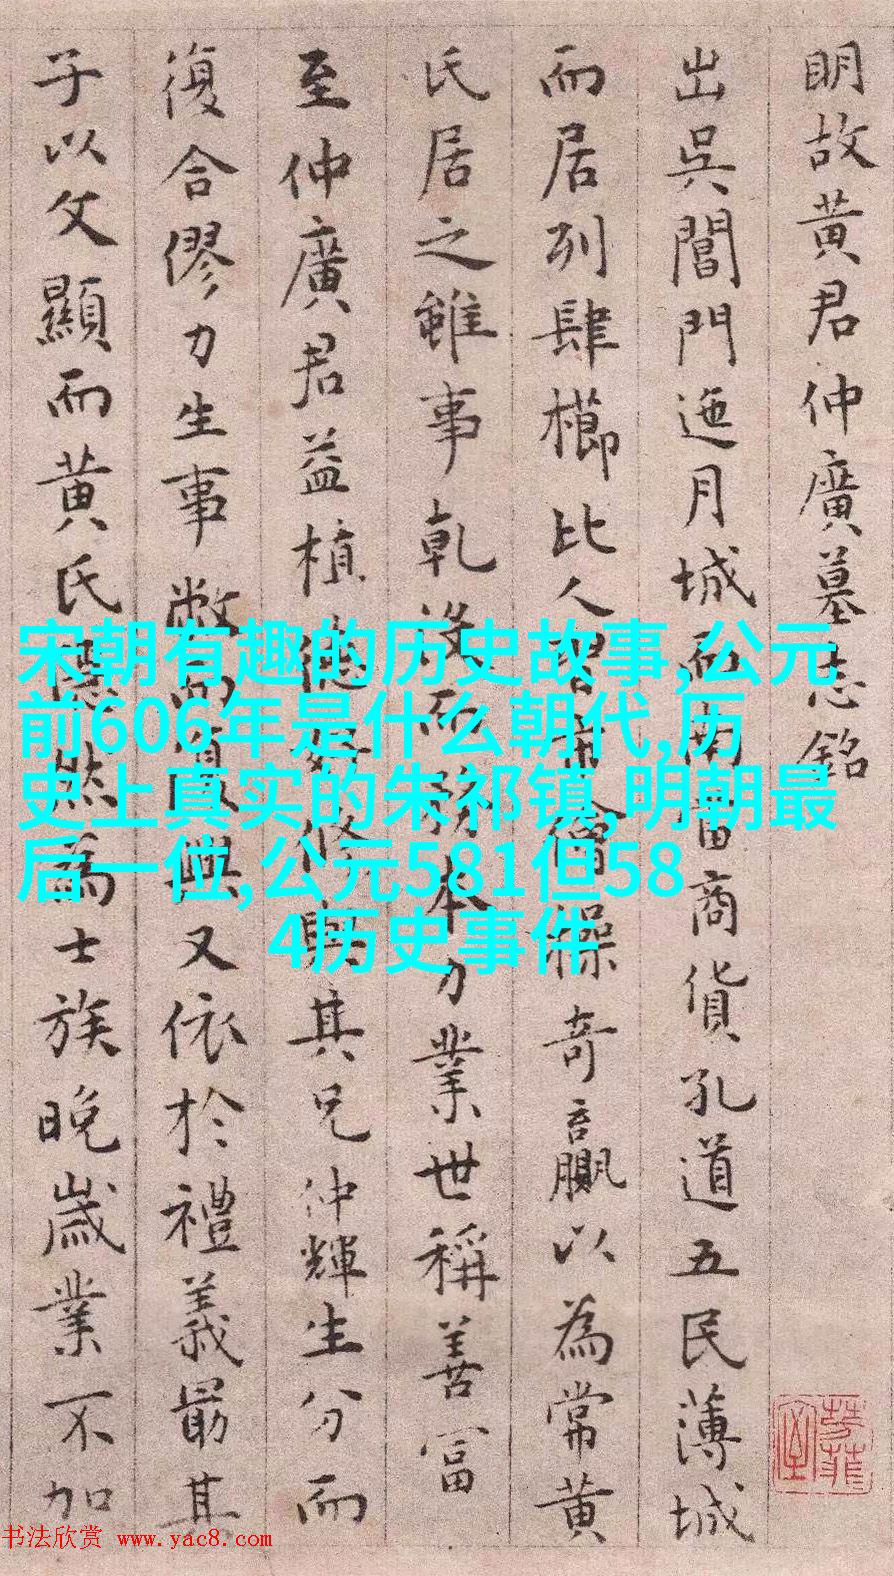 明故黄君仲廣墓志銘
出吳閶門迤月城而南當商貨孔道五民薄城
而居列肆櫛比人習市儈操奇贏以為常黄
氏居之雖事乾没而務本力業世稱善富
至仲廣君益植德好修與其兄仲輝生分而
復合僇力生事
又依於禮義最其
子以文顯而黄氏隱然為士族晚歲業不加
宋朝有趣的历史故事,公元
前606年是什么朝代,历
史上真实的朱祁镇,明朝最
后一位,公元581但58
4历史事件
书法欣赏 www.yac8.com